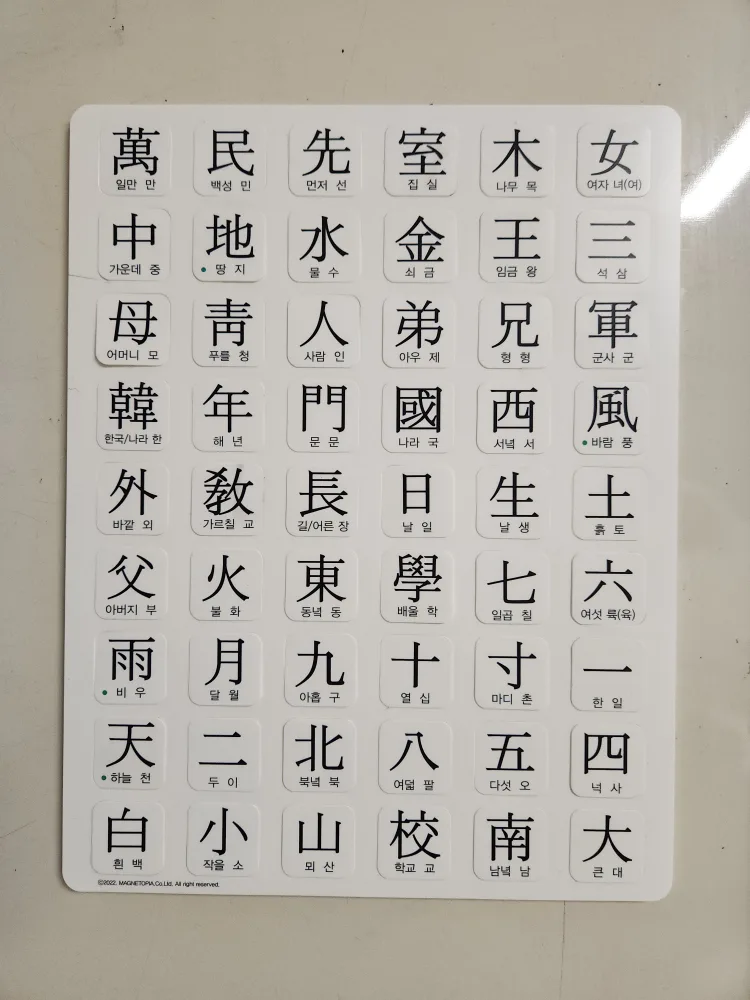 萬 民 先 室 木 女
일만 만 백성 민 먼저 선 집 실 나무 목 여자 녀(여)
中 地 水 金 王 三
가운데 중 • 땅 지 물 수 쇠 금 임금 왕 석 삼
母 靑 人 弟 兄 軍
어머니 모 푸를 청 사람 인 아우 제 형 형 군사 군
韓 年 門 國 西 風
한국/나라 한 해 년 문 문 나라 국 서녘 서 • 바람 풍
外 敎 長 日 生 土
바깥 외 가르칠 교 길/어른 장 날 일 날 생 흙 토
父 火 東 學 七 六
아버지 부 불 화 동녘 동 배울 학 일곱 칠 여섯 륙(육)
雨 月 九 十 寸 一
• 비 우 달 월 아홉 구 열 십 마디 촌 한 일
天 二 北 八 五 四
• 하늘 천 두 이 북녘 북 여덟 팔 다섯 오 넉 사
白 小 山 校 南 大
흰 백 작을 소 뫼 산 학교 교 남녘 남 큰 대
©2022. MAGNETOPIA.Co.Ltd. All right reserved.